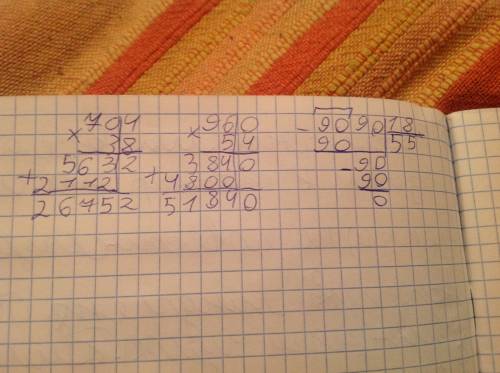 704
× 38
5632
+ 2112
26752
960
× 54
3840
+ 4800
51840
- 9090 18
90 55
- 90
90
0